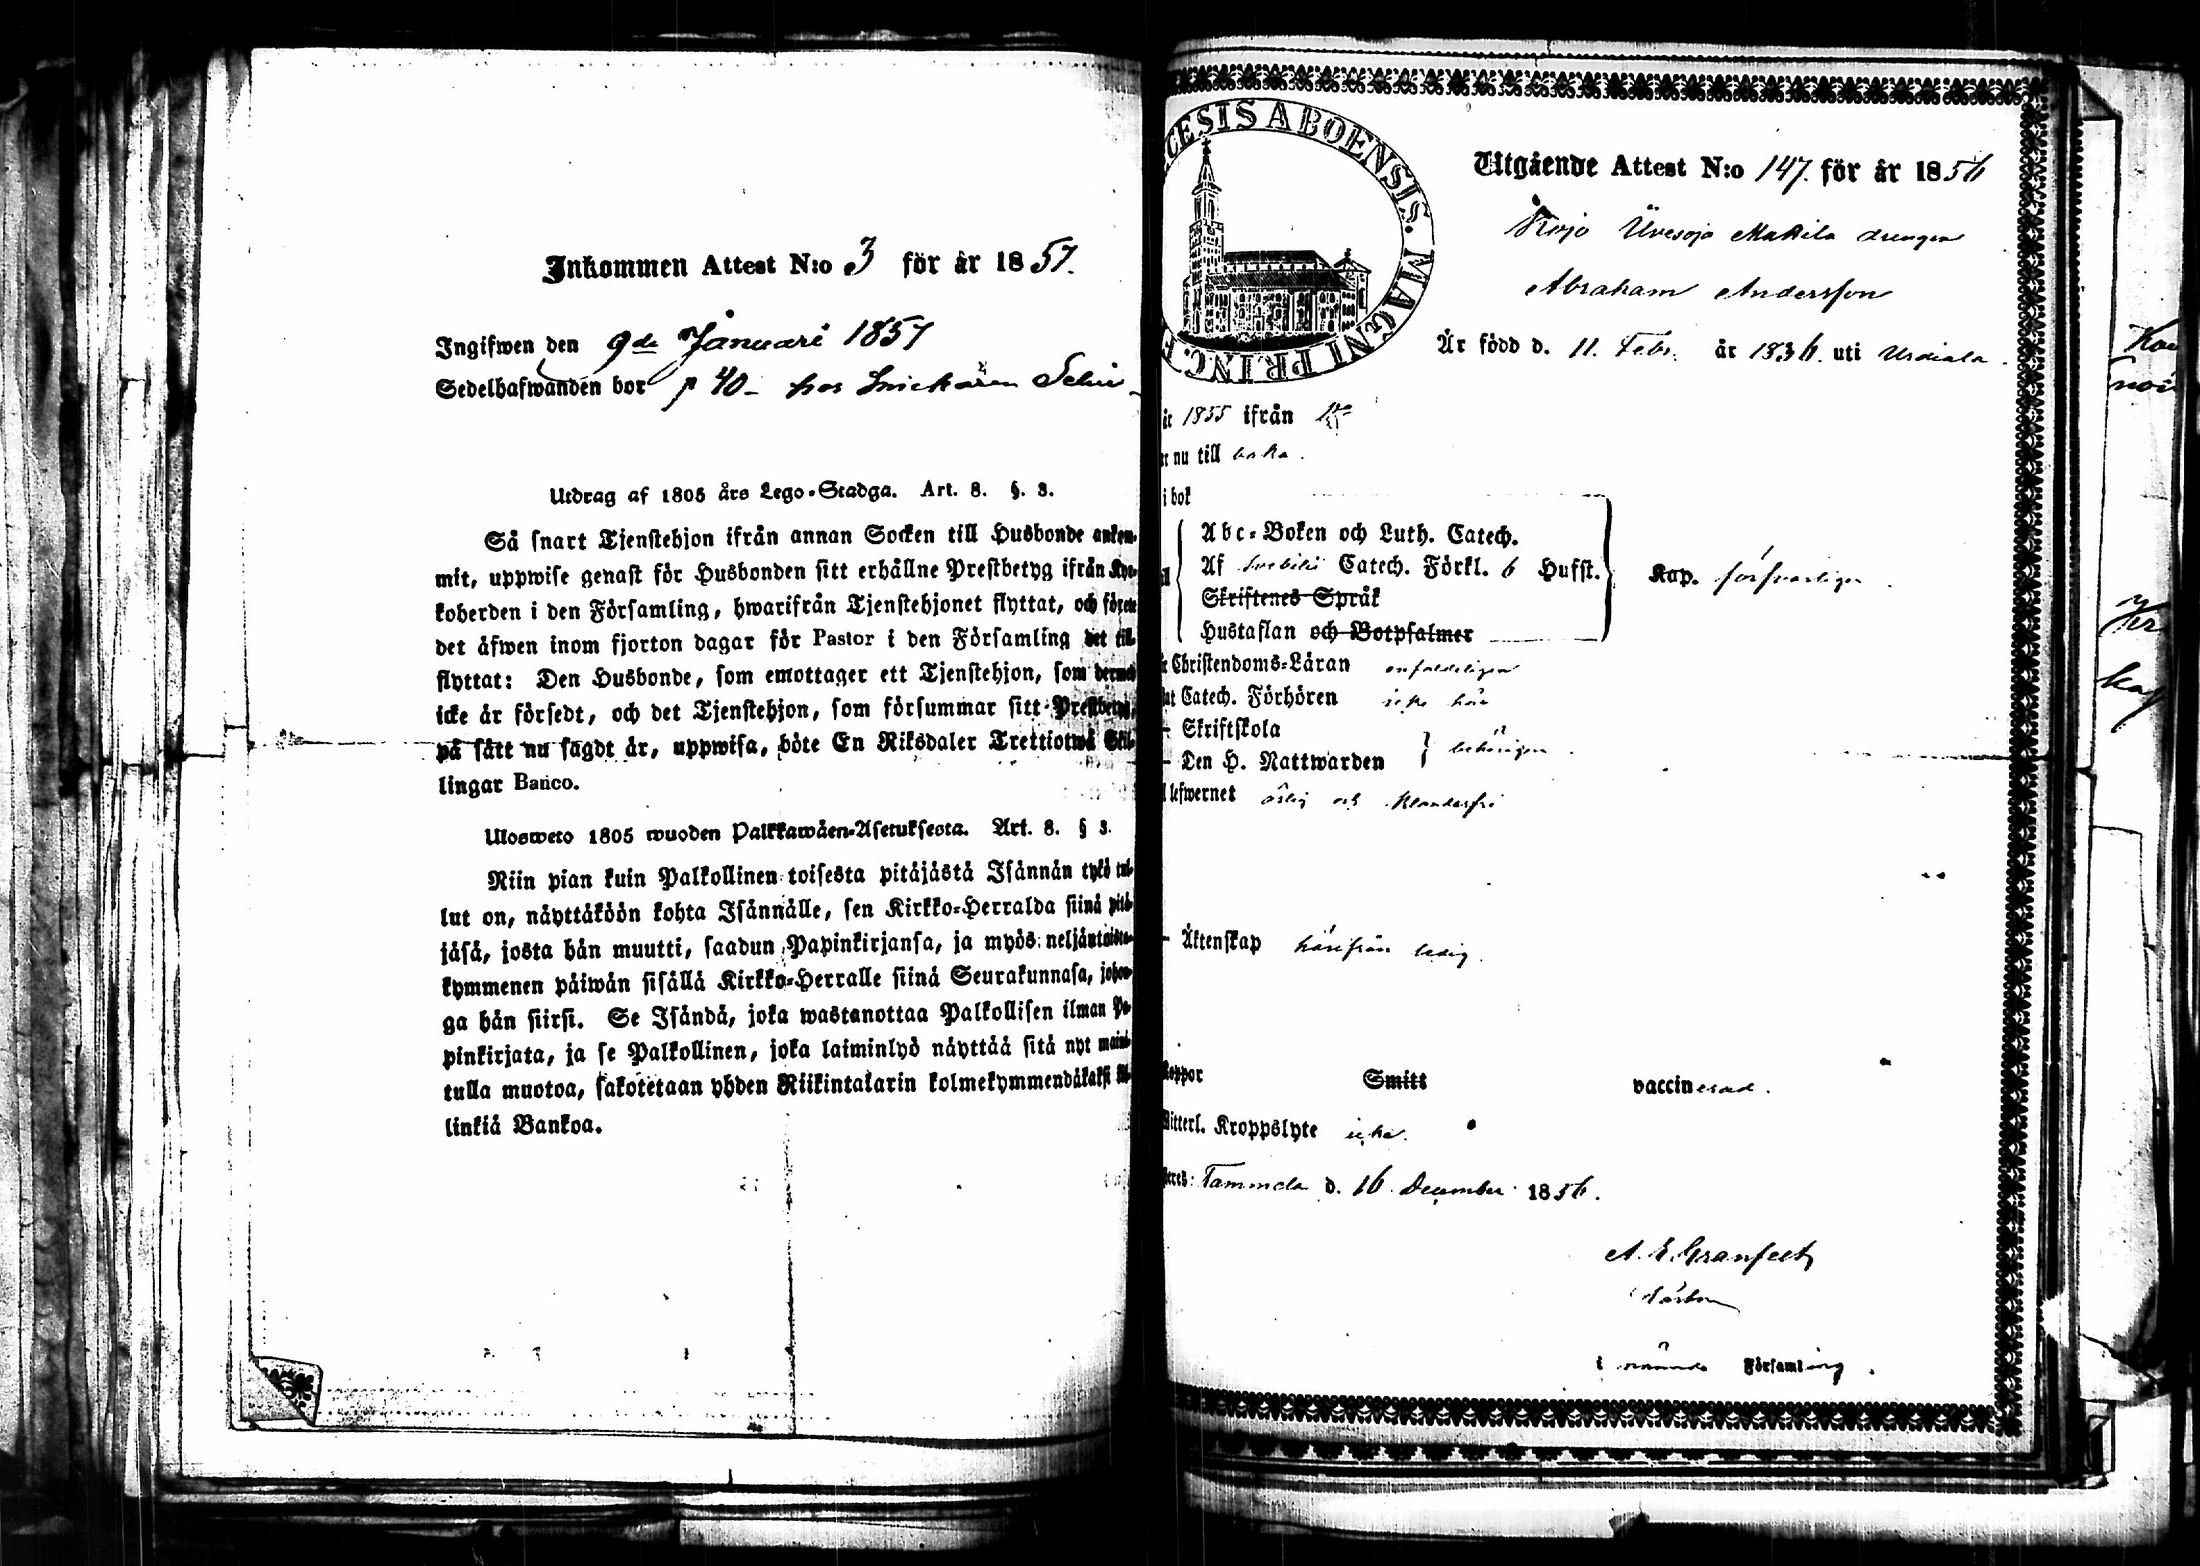 Inkommen Attest N:o 3 för år 1857.
Ingifwen den 9de Januari 1857
Sedelhafwanden bor p 40 – hos Snickaren
Utdrag af 1805 års Lego-Stadga. Art. 8. §. 3.
Så snart Tjenstehjon ifrån annan Socken till Husbonde ankom-
mit, uppwise genast för Husbonden sitt erhållne Prestbetyg ifrån Kyr-
koherden i den Församling, hwarifrån Tjenstehjonet flyttat, och förete
det äfwen inom fjorton dagar för Pastor i den Församling det till-
flyttat: Den Husbonde, som emottager ett Tjenstehjon, som dermed
icke är försedt, och det Tjenstehjon, som försummar sitt Prestbetyg,
på sätt nu sagdt är, uppwisa, böte En Riksdaler Trettiotwå Skil-
lingar Banco.
Ulosweto 1805 wuoden Palkkawäen-Asetuksesta. Art. 8. § 3.
Niin pian kuin Palkollinen toisesta pitäjästä Isännän tykö tul-
lut on, näyttäköön kohta Isännälle, sen Kirkko-Herralda siinä pitä-
jäsä, josta hän muutti, saadun Papinkirjansa, ja myös neljäntoista-
kymmenen päiwän sisällä Kirkko-Herralle siinä Seurakunnasa, johon-
ga hän siirsi. Se Isändä, joka wastanottaa Palkollisen ilman Pa-
pinkirjata, ja se Palkollinen, joka laiminlyö näyttää sitä nyt maini-
tulla muotoa, sakotetaan yhden Riikintalarin kolmekymmendäkaksi kil-
linkiä Bankoa.
CESIS ABOENSIS. MAGNI PRINC. F
Utgående Attest N:o 147. för år 1856
Kojo Makila drengen
Abraham Andersson
Är född d. 11. Febr. år 1836. uti Urdiala.
år 1855 ifrån
nu till baka.
i bok
Abc-Boken och Luth. Catech.
Af Svebilii Catech. Förkl. 6 Hufst.
Skriftenes Språk
Hustaflan och Botpsalmer
Kap. försvarligen.
Christendoms-Läran enfaldeligen
Catech. Förhören icke här
– Skriftskola
– Den H. Nattwarden } behörigen.
lefwernet ärlig och klanderfri
– Äktenskap härifrån ledig.
Koppor Smitt vaccinerad.
Witterl. Kroppslyte icke.
Tammela d. 16 December 1856.
A. E. Granfelt
i nämnde Församling.